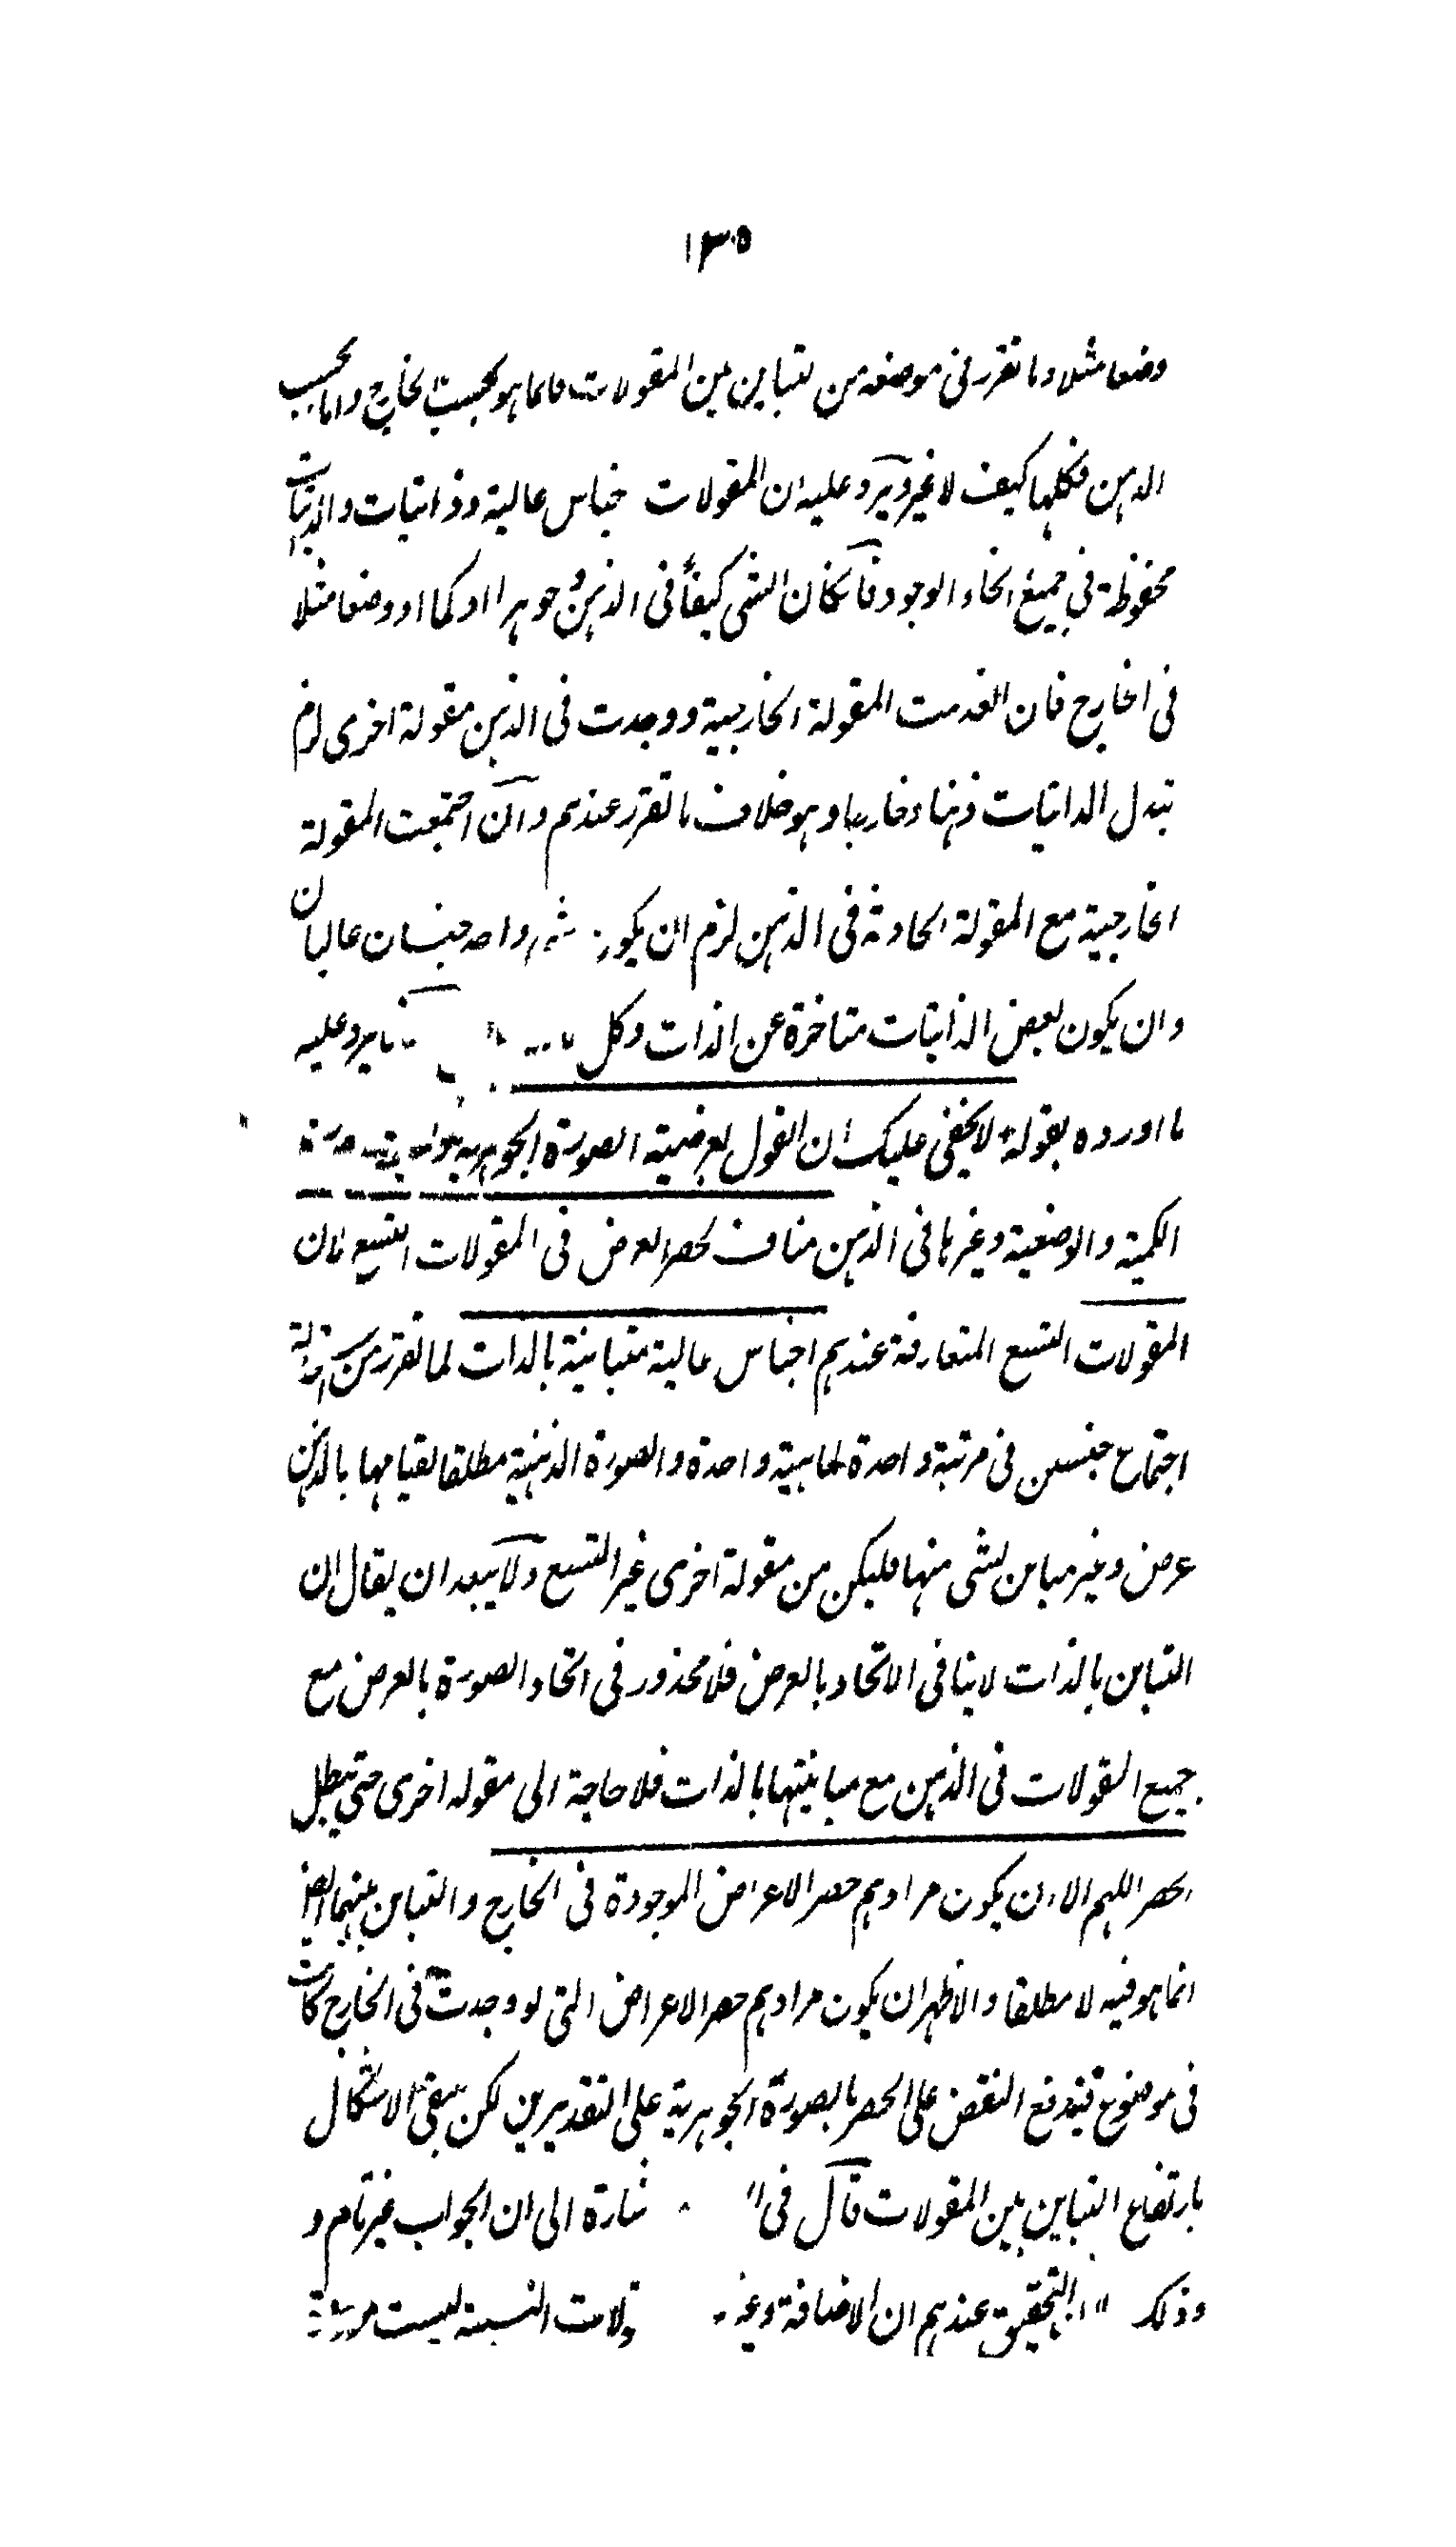 ١٣٥
وضعا مثلا وما تقرر فى موضعه من التباين بين المقولات فانما هو بحسب الخارج واما بحسب
الذهن فكلها كيف لا غير ويرد عليه ان المقولات اجناس عالية وذاتيات والذاتيات
محفوظة فى جميع انحاء الوجود فان كان الشى كيفا فى الذهن و جوهرا او كما او وضعا مثلا
فى الخارج فان انعدمت المقولة الخارجية ووجدت فى الذهن مقولة اخرى لزم
تبدل الذاتيات ذهنا وخارجا وهو خلاف ما تقرر عندهم وان اجتمعت المقولة
الخارجية مع المقولة الحادثة فى الذهن لزم ان يكون شى واحد جنسان عاليان
وان يكون بعض الذاتيات متاخرة عن الذات وكل يرد عليه
ما اورده بقوله لا يخفى عليك ان القول بعرضية الصورة الجوهرية
الكمية والوضعية وغيرها فى الذهن مناف لحصر العرض فى المقولات التسع فان
المقولات التسع المتعارفة عندهم اجناس عالية متباينة بالذات لما تقرر من
اجتماع جنسين فى مرتبة واحدة لماهية واحدة والصورة الذهنية مطلقا لقيامها بالذهن
عرض وغير مباين لشى منها فليكن من مقولة اخرى غير التسع ولا يبعد ان يقال ان
التباين بالذات لا ينافى الاتحاد بالعرض فلا محذور فى اتحاد الصورة بالعرض مع
جميع المقولات فى الذهن مع مباينتها بالذات فلا حاجة الى مقولة اخرى حتى يبطل
الحصر اللهم الا ان يكون مرادهم حصر الاعراض الموجودة فى الخارج والتباين بينهما ايضا
انما هو فيه لا مطلقا والاظهر ان يكون مرادهم حصر الاعراض التى لو وجدت فى الخارج كانت
فى موضوع فيندفع النقض على الحصر بالصورة الجوهرية على التقديرين لكن يبقى الاشكال
بارتفاع التباين بين المقولات قال فى شارة الى ان الجواب غير تام و
وذلك التحقيق عندهم ان الاضافة ولات النسبية ليست